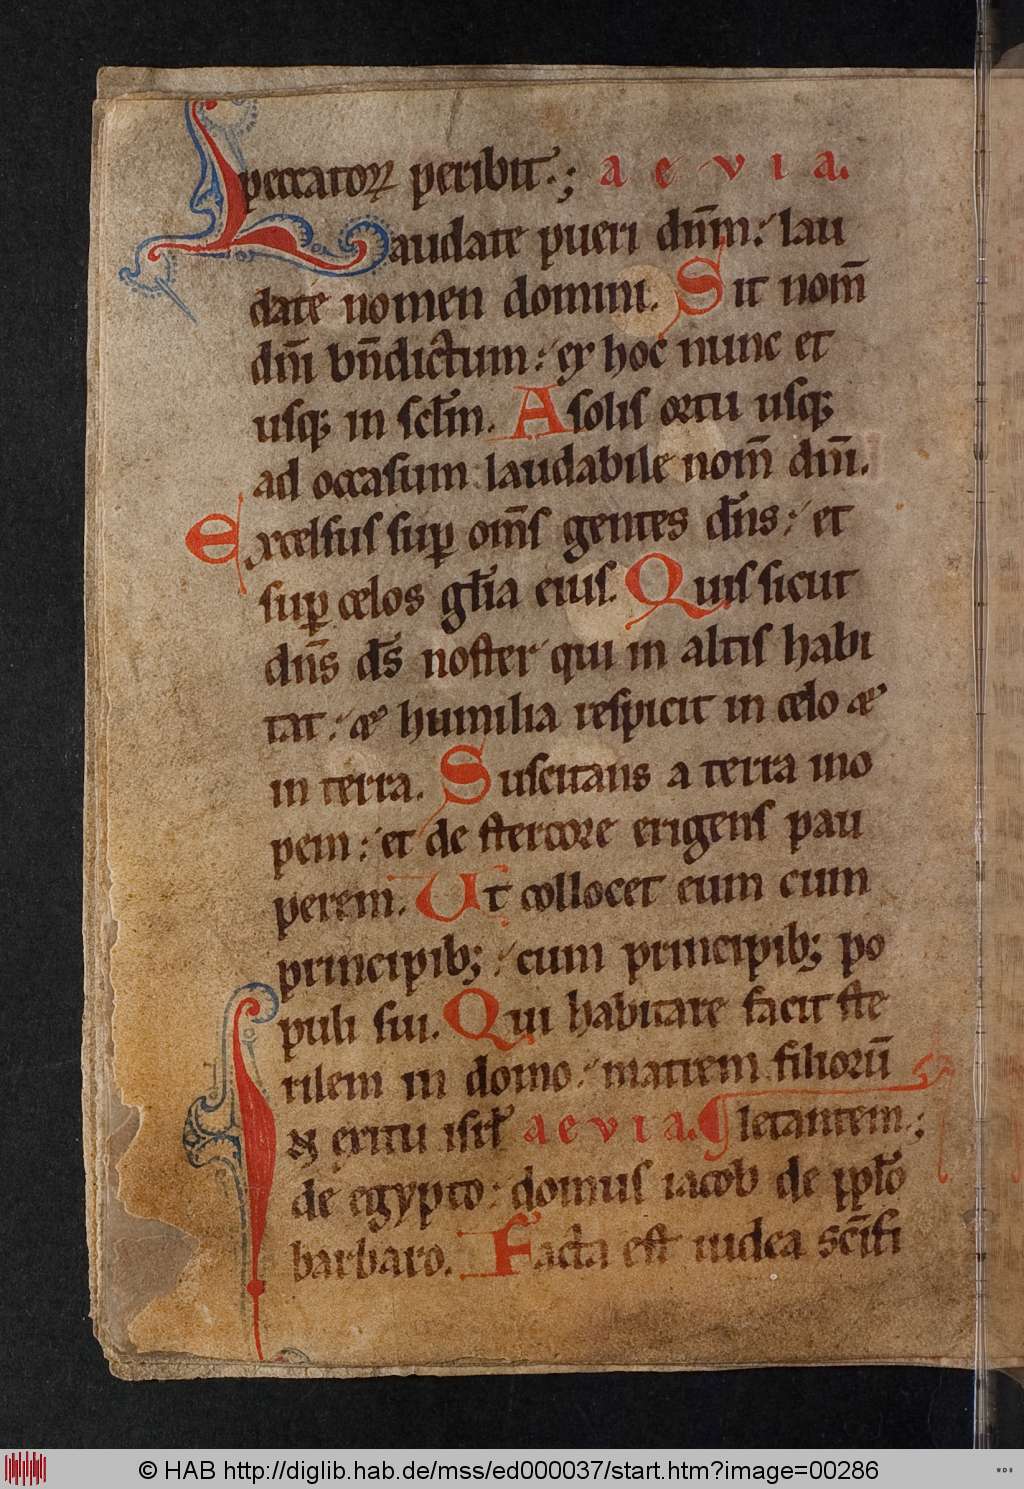 peccatoꝝ peribit.; a e v i a.
Laudate pueri dn̄m: lau
date nomen domini. Sit nom̄
dn̄i bn̄dictum: ex hoc nunc et
usq; in scl̄m. A solis ortu usq;
ad occasum laudabile nom̄ dn̄i.
Excelsus suꝑ om̄s gentes dn̄s: et
suꝑ celos gl̄ia eius. Quis sicut
dn̄s ds̄ noster qui in altis habi
tat: & humilia respicit in celo &
in terra. Suscitans a terra ino
pem: et de stercore erigens pau
perem. Ut collocet eum cum
principib; : cum principib; po
puli sui. Qui habitare facit ste
rilem in domo: matrem filiorū
In exitu isrl̄ a e v i a. ¶ letantem.;
de egypto: domus iacob de ppl̄o
barbaro. Facta est iudea sc̄ifi
© HAB http://diglib.hab.de/mss/ed000037/start.htm?image=00286